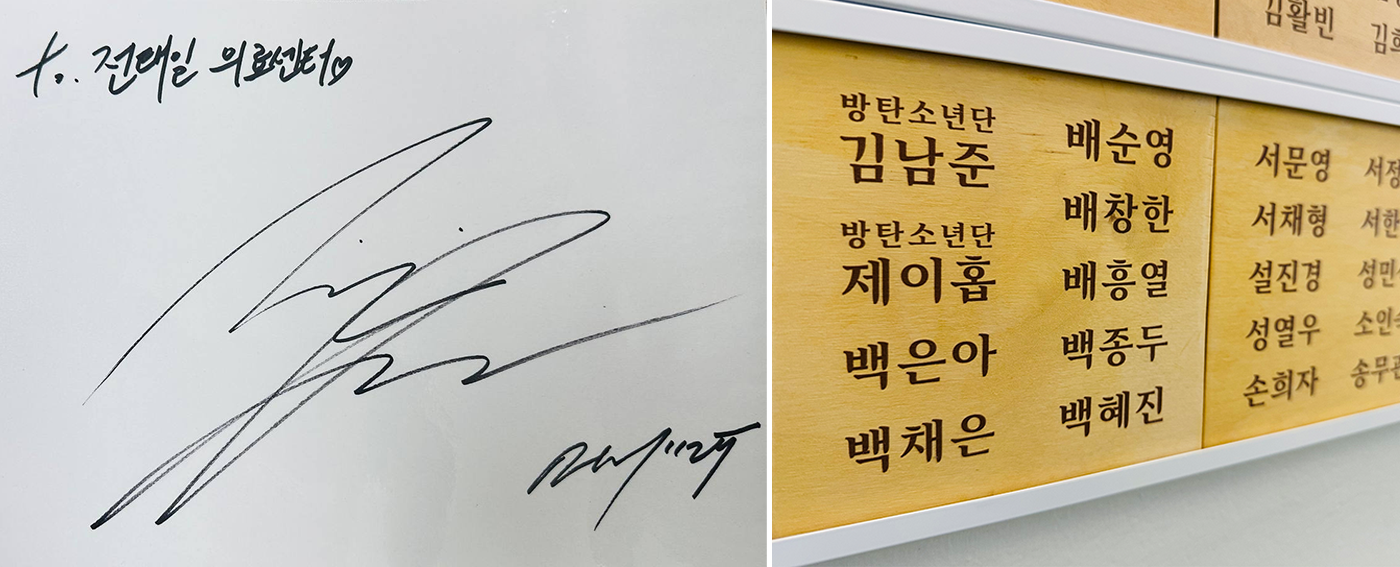 to. 전태일 의료센터♡
김활빈
방탄소년단
김남준
방탄소년단
제이홉
백은아
백채은
배순영
배창한
배흥열
백종두
백혜진
서문영
서채형
설진경
성열우
손희자